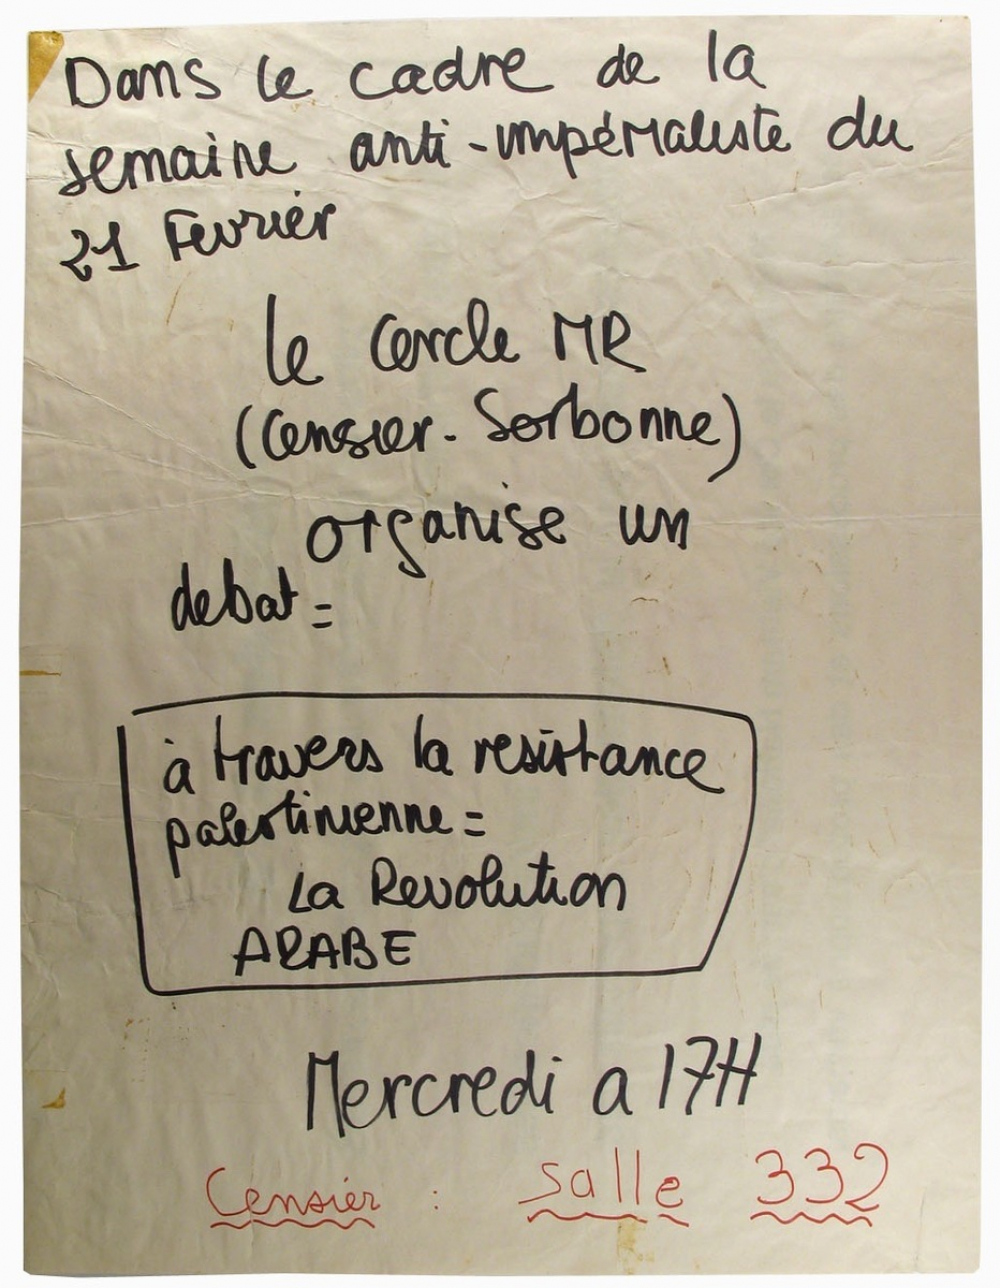 Dans le cadre de la
semaine anti-impérialiste du
21 Fevrier
le Cercle MR
(Censier-Sorbonne)
organise un
debat =
à travers la resistance
palestinienne =
La Revolution
ARABE
Mercredi a 17H
Censier : Salle 332